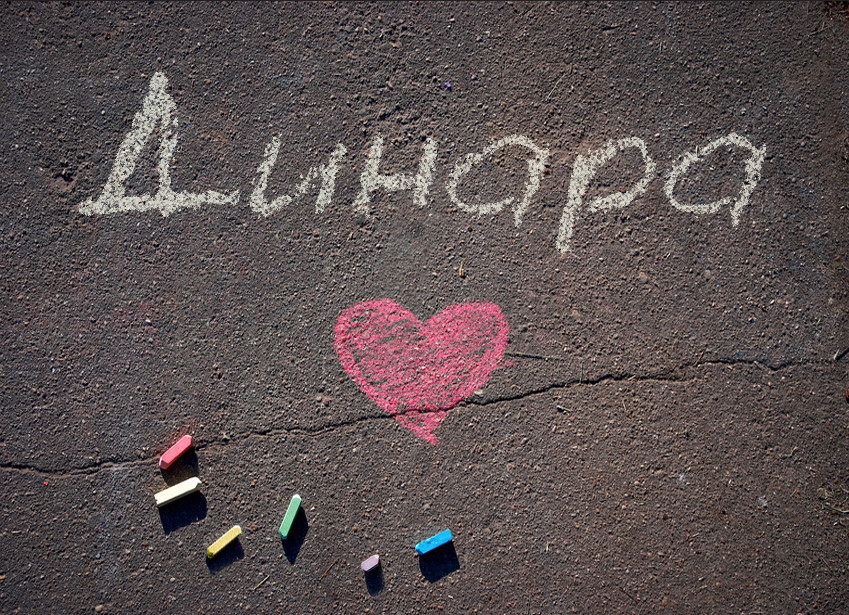 Динара